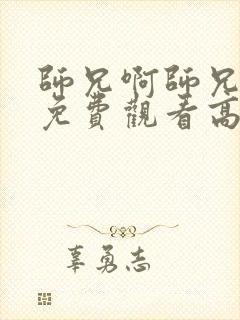 師兄啊師兄
免費觀看高
辜勇志